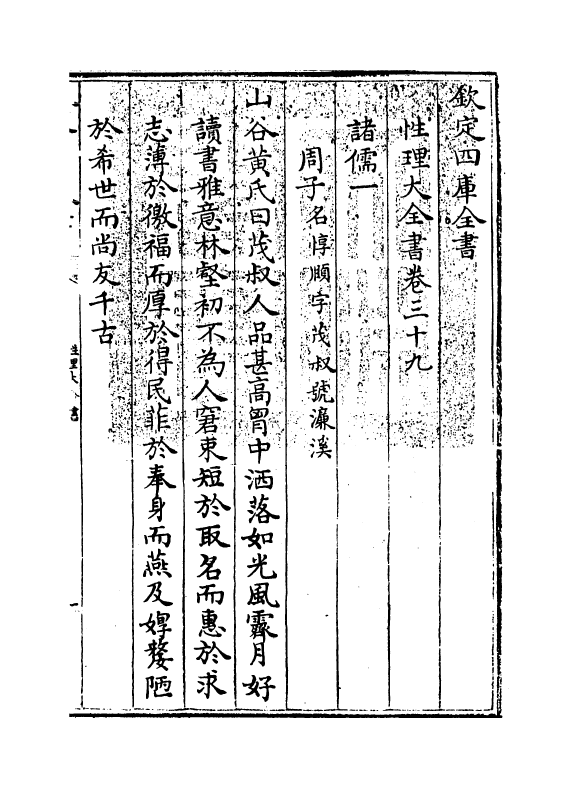 欽定四庫全書
性理大全書卷三十九
諸儒一
周子名惇頤字茂叔號濂溪
山谷黄氏曰茂叔人品甚高胷中洒落如光風霽月好
讀書雅意林壑初不為人窘束短於取名而惠於求
志薄於徼福而厚於得民菲於奉身而燕及煢嫠陋
於希世而尚友千古
性理大全書
一